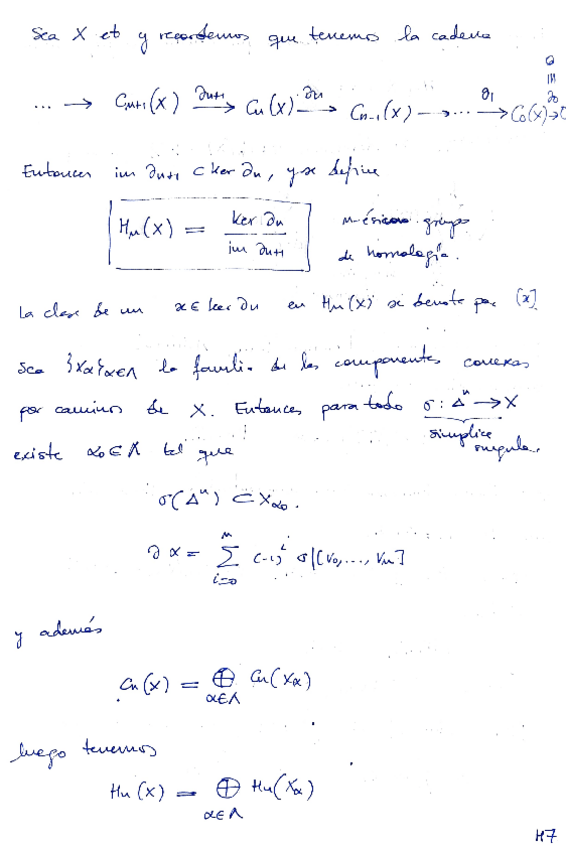 Sea X et y recordemos que tenemos la cadena
0
|||
∂0
... → Cn+1(X) —∂n+1→ Cn(X) —∂n→ Cn-1(X) → ... —∂1→ C0(X) → 0
Entonces im ∂n+1 ⊂ ker ∂n, y se define
Hn(X) = ker ∂n / im ∂n+1 n-ésimo grupo
de homología.
La clase de un x ∈ ker ∂n en Hn(X) se denota por [x].
Sea {Xα}α∈Λ la familia de las componentes conexas
por caminos de X. Entonces para todo σ: Δⁿ → X
símplice
singular.
existe α0 ∈ Λ tal que
σ(Δⁿ) ⊂ Xα0.
∂ x = Σ i=0 n (-1)^i σ|[v0,..., vn]
y además
Cn(X) = ⊕ α∈Λ Cn(Xα)
luego tenemos
Hn(X) = ⊕ α∈Λ Hn(Xα)
H7